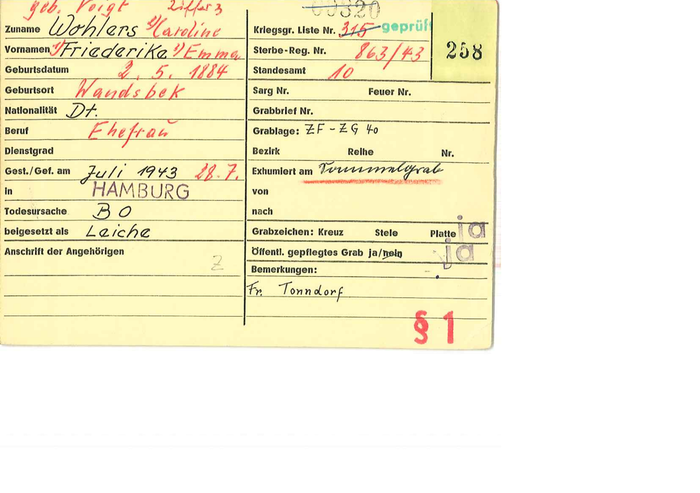 geb. Voigt Ziffer 3
Zuname Wohlers 3) Karoline
Vornamen 1) Friederike 2) Emma
Geburtsdatum 2. 5. 1884
Geburtsort Wandsbek
Nationalität Dt.
Beruf Ehefrau
Dienstgrad
Gest./Gef. am Juli 1943 28.7.
in HAMBURG
Todesursache BO
beigesetzt als Leiche
Anschrift der Angehörigen
Z
00320
Kriegsgr. Liste Nr. 315 geprüft
258
Sterbe-Reg. Nr. 863/43
Standesamt 10
Sarg Nr. Feuer Nr.
Grabbrief Nr.
Grablage: ZF-ZG 40
Bezirk Reihe Nr.
Exhumiert am Sammelgrab
von
nach
Grabzeichen: Kreuz Stele Platte ja
Öffentl. gepflegtes Grab ja/nein ja
Bemerkungen:
Fr. Tonndorf
§ 1